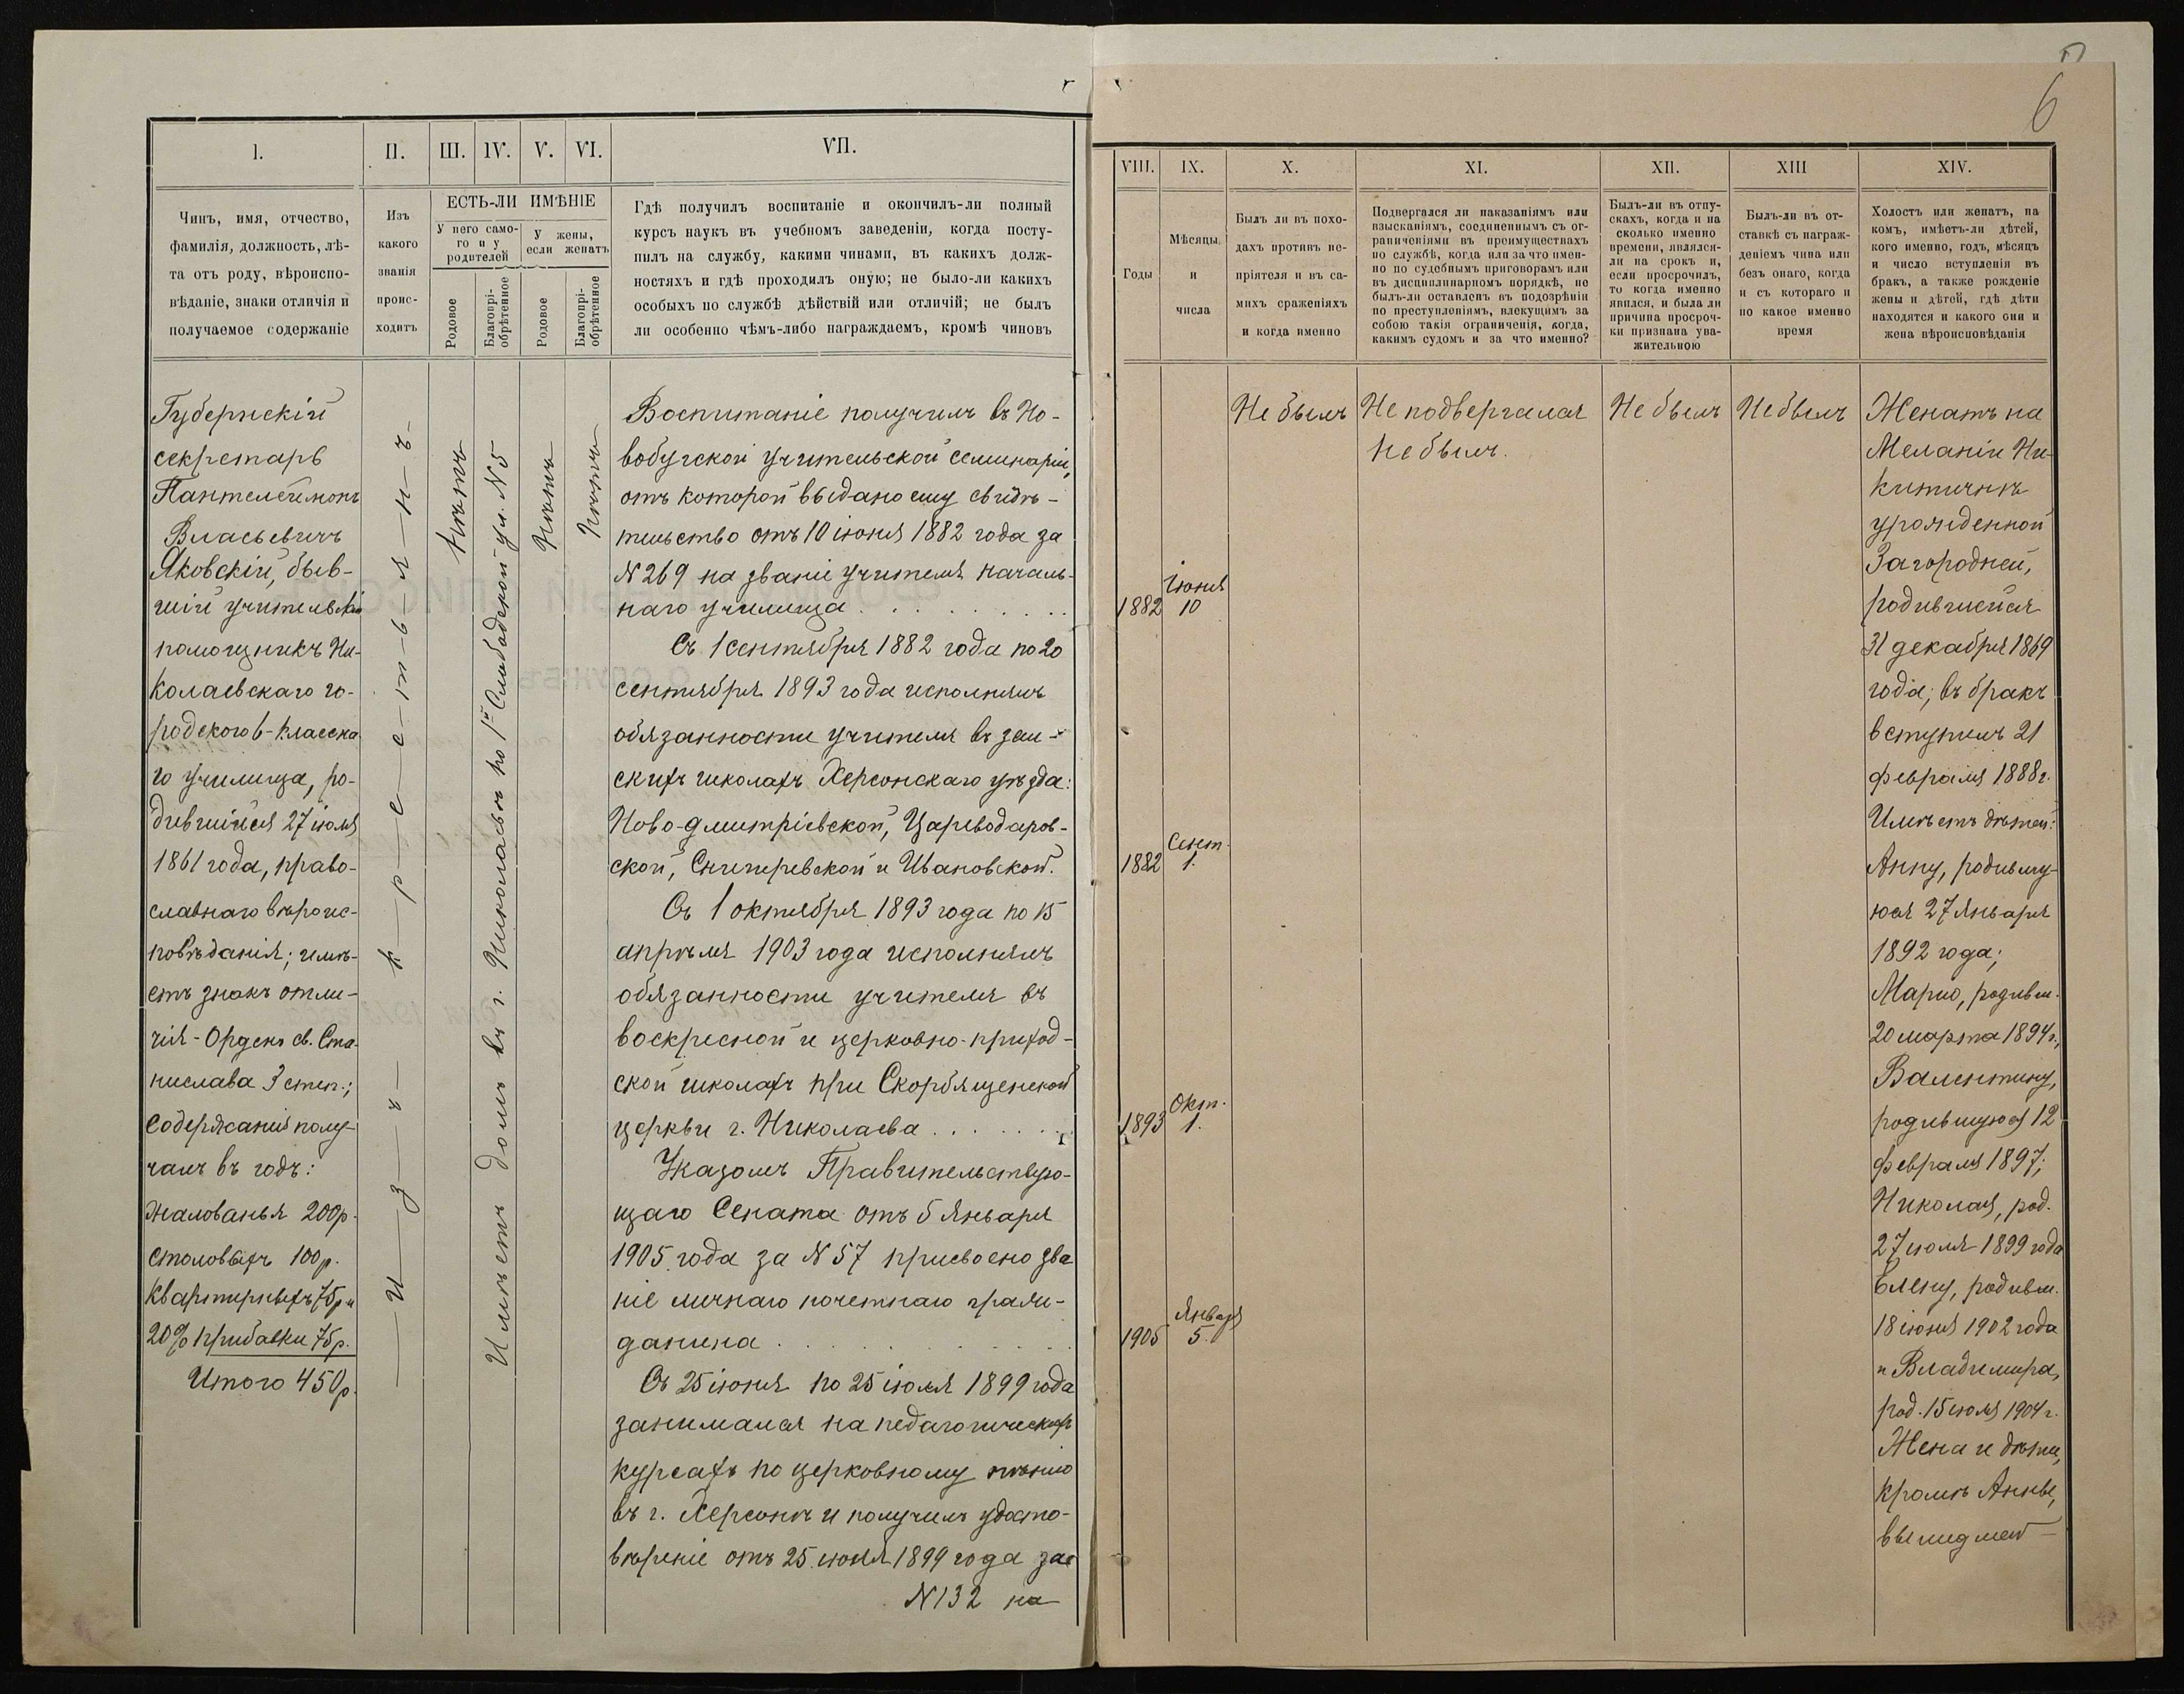 6
I.
II.
III.
IV.
V.
VI.
VII.
Чинъ, имя, отчество,
фамилія, должность, лѣ-
та отъ роду, вѣроиспо-
вѣданіе, знаки отличія и
получаемое содержаніе
Изъ
какого
званія
проис-
ходитъ
ЕСТЬ-ЛИ ИМѢНІЕ
У него само-
го и у
родителей
У жены,
если женатъ
Родовое
Благопрі-
обрѣтенное
Родовое
Благопрі-
обрѣтенное
Гдѣ получилъ воспитаніе и окончилъ-ли полный
курсъ наукъ въ учебномъ заведеніи, когда посту-
пилъ на службу, какими чинами, въ какихъ долж-
ностяхъ и гдѣ проходилъ оную; не было-ли какихъ
особыхъ по службѣ дѣйствій или отличій; не былъ
ли особенно чѣмъ-либо награждаемъ, кромѣ чиновъ
Губернскій
секретарь
Пантелеймонъ
Власьевичъ
Яковскій, быв-
шій учительскій
помощникъ Ни-
колаевскаго го-
родского 6-класснa
го училища, ро-
дившійся 27 іюля
1861 года, право-
славнаго вѣроис-
повѣданія; имѣ-
етъ знакъ отли-
чія - Орденъ св. Ста-
нислава 3 степ.;
содержанія полу-
чалъ въ годъ:
жалованья 200р.
столовыхъ 100р.
квартирныхъ 75р и
20% прибавки 75р.
Итого 450р.
Изъ крестьянъ
Нѣтъ
Имѣетъ домъ въ г. Николаевѣ по 1й Слободской ул. N 5
Нѣтъ
Нѣтъ
Воспитаніе получилъ въ Но-
вобугской учительской семинаріи,
отъ которой выдано ему свидѣ-
тельство отъ 10 іюня 1882 года за
N 269 на званіе учителя началь-
наго училища . . . . . . . .
Съ 1 сентября 1882 года по 20
сентября 1893 года исполнялъ
обязанности учителя въ зем-
скихъ школахъ Херсонскаго уѣзда:
Ново-Дмитріевской, Цареводаров-
ской, Снигиревской и Ивановской.
Съ 1 октября 1893 года по 15
апрѣля 1903 года исполнялъ
обязанности учителя въ
воскресной и церковно-приход-
ской школахъ при Скорбященской
церкви г. Николаева . . . . . . .
Указомъ Правительствую-
щаго Сената отъ 5 Января
1905 года за N 57 присвоено зва
ніе личнаго почетнаго граж-
данина . . . . . . . .
Съ 25 іюня по 25 іюля 1899 года
занимался на педагогическихъ
курсахъ по церковному пѣнію
въ г. Херсонѣ и получилъ удосто-
вѣреніе отъ 25 іюля 1899 года за
N 132 на
VIII.
IX.
X.
XI.
XII.
XIII
XIV.
Годы
Мѣсяцы
и
числа
Былъ ли въ похо-
дахъ противъ не-
пріятеля и въ са-
михъ сраженіяхъ
и когда именно
Подвергался ли наказаніямъ или
взысканіямъ, соединеннымъ съ ог-
раниченіями въ преимуществахъ
по службѣ, когда или за что имен-
но по судебнымъ приговорамъ или
въ дисциплинарномъ порядкѣ, не
былъ-ли оставленъ въ подозрѣніи
по преступленіямъ, влекущимъ за
собою такія ограниченія, когда,
какимъ судомъ и за что именно?
Былъ-ли въ отпу-
скахъ, когда и на
сколько именно
времени, являлся-
ли на срокъ и,
если просрочилъ,
то когда именно
явился, и была ли
причина просроч-
ки признана ува-
жительною
Былъ-ли въ от-
ставкѣ съ награж-
деніемъ чина или
безъ онаго, когда
и съ котораго и
по какое именно
время
Холостъ или женатъ, на
комъ, имѣетъ-ли дѣтей,
кого именно, годъ, мѣсяцъ
и число вступленія въ
бракъ, а также рожденіе
жены и дѣтей, гдѣ дѣти
находятся и какого они и
жена вѣроисповѣданія
1882
Іюня
10
1882
Сент.
1.
1893
Окт.
1.
1905
Января
5.
Не былъ
Не подвергался
не былъ.
Не былъ
Не былъ
Женатъ на
Меланіи Ни-
китичнѣ
урожденной
Загородней,
родившейся
31 декабря 1869
года; въ бракъ
вступилъ 21
февраля 1888 г.
Имѣетъ дѣтей:
Анну, родившу-
юся 27 Января
1892 года;
Марію, родивш.
20 марта 1894 г.,
Валентину,
родившуюся 12
февраля 1897;
Николая, род.
27 іюля 1899 года
Елену, родивш.
18 іюня 1902 года
и Владимира,
род. 15 іюля 1904 г.
Жена и дѣти,
кромѣ Анны,
вышедшей